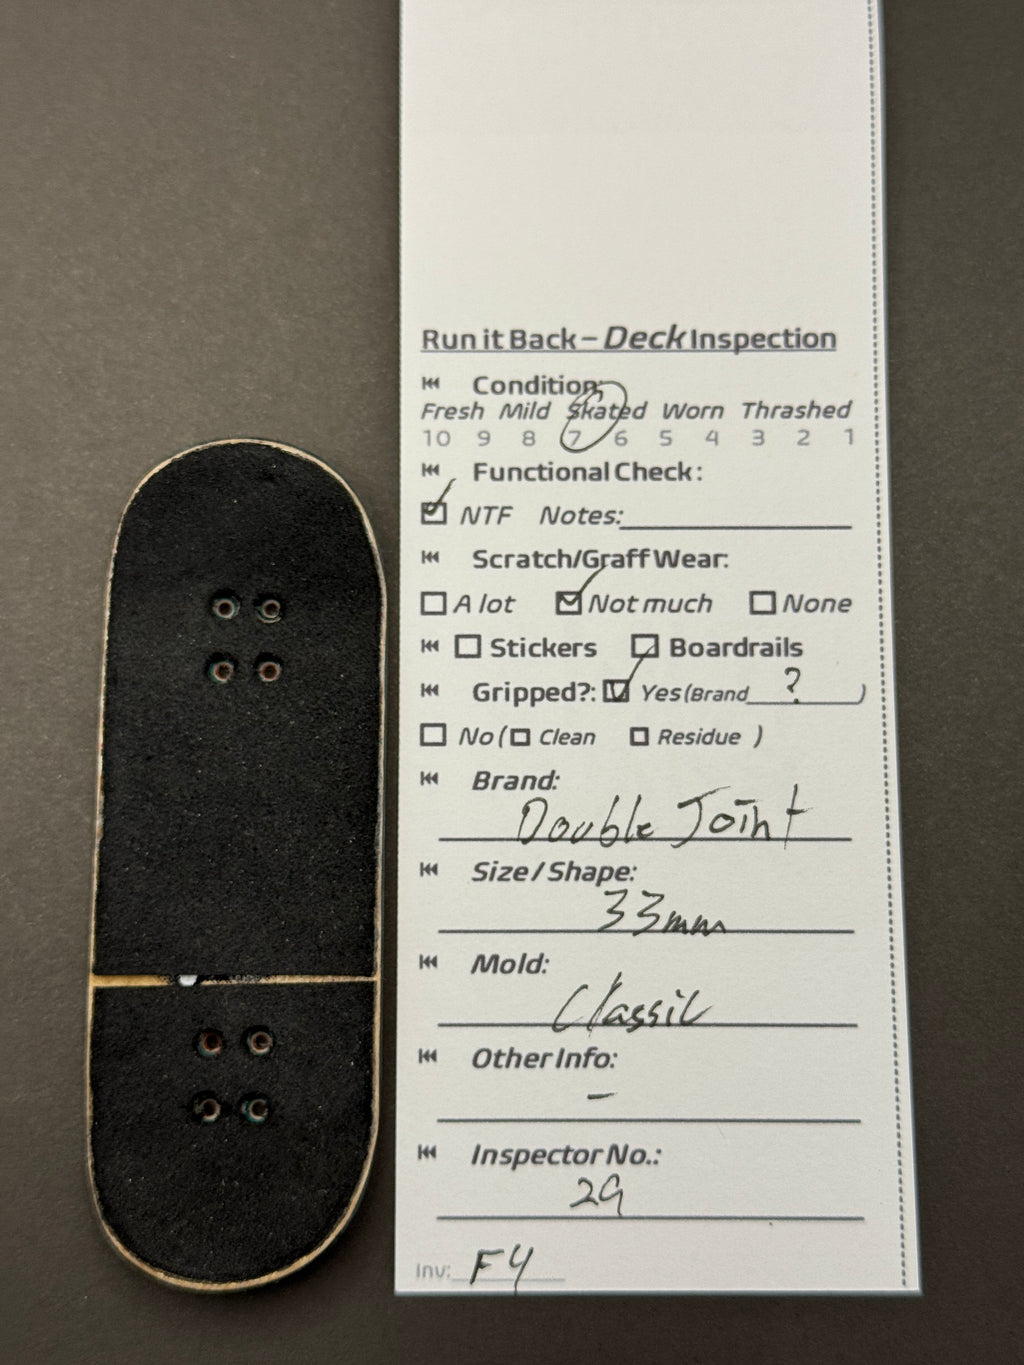 Run it Back – Deck Inspection
Condition:
Fresh Mild Skated Worn Thrashed
10 9 8 7 6 5 4 3 2 1
Functional Check:
NTF Notes:
Scratch/Graff Wear:
A lot Not much None
Stickers Boardrails
Gripped?: Yes (Brand ? )
No ( Clean Residue )
Brand:
Double Joint
Size / Shape:
33mm
Mold:
Classic
Other Info:
–
Inspector No.:
29
Inv: F4